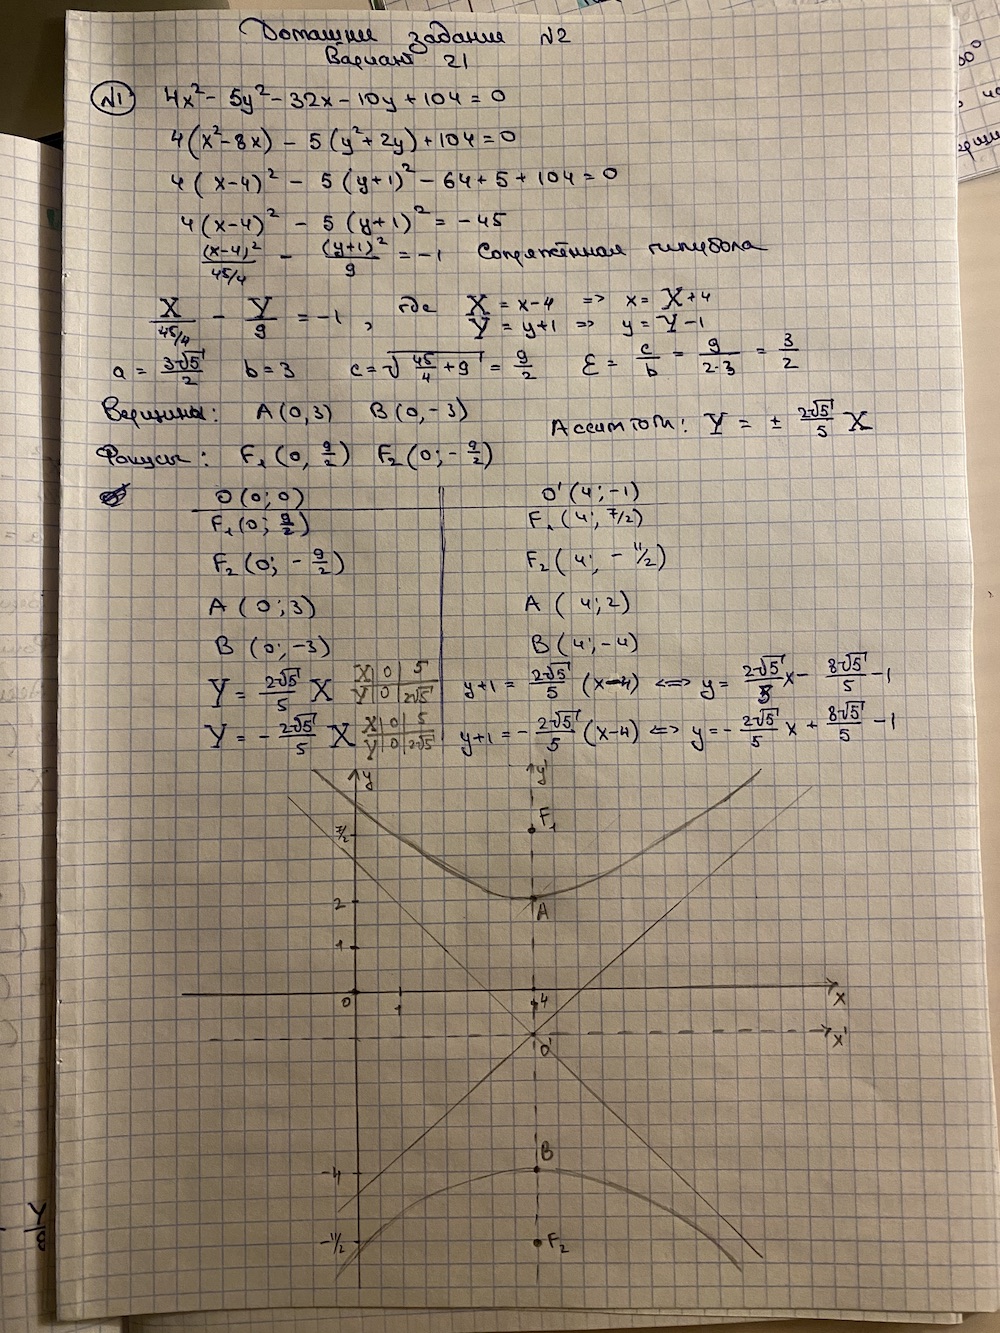 Домашнее задание №2
Вариант 21
№1 4x² - 5y² - 32x - 10y + 104 = 0
4(x² - 8x) - 5(y² + 2y) + 104 = 0
4(x-4)² - 5(y+1)² - 64 + 5 + 104 = 0
4(x-4)² - 5(y+1)² = -45
(x-4)²/45/4 - (y+1)²/9 = -1 Сопряжённая гипербола
X/45/4 - Y/9 = -1, где X = x-4 => x = X+4
Y = y+1 => y = Y-1
a = 3√5/2 b = 3 c = √(45/4 + 9) = 9/2 Ɛ = c/b = 9/2·3 = 3/2
Вершины: A(0,3) B(0,-3)
Ассимтоты: Y = ± 2√5/5 X
Фокусы: F₁(0, 9/2) F₂(0; -9/2)
O(0; 0) O'(4; -1)
F₁(0; 9/2) F₁(4; 7/2)
F₂(0; -9/2) F₂(4; -11/2)
A(0; 3) A(4; 2)
B(0; -3) B(4; -4)
Y = 2√5/5 X X 0 5 y+1 = 2√5/5 (x-4) <=> y = 2√5/5 x - 8√5/5 - 1
Y 0 2√5
Y = -2√5/5 X X 0 5 y+1 = -2√5/5 (x-4) <=> y = -2√5/5 x + 8√5/5 - 1
Y 0 2√5
y y'
7/2 F₁
2 A
1
0 1 4 x
O' x'
-4 B
-11/2 F₂